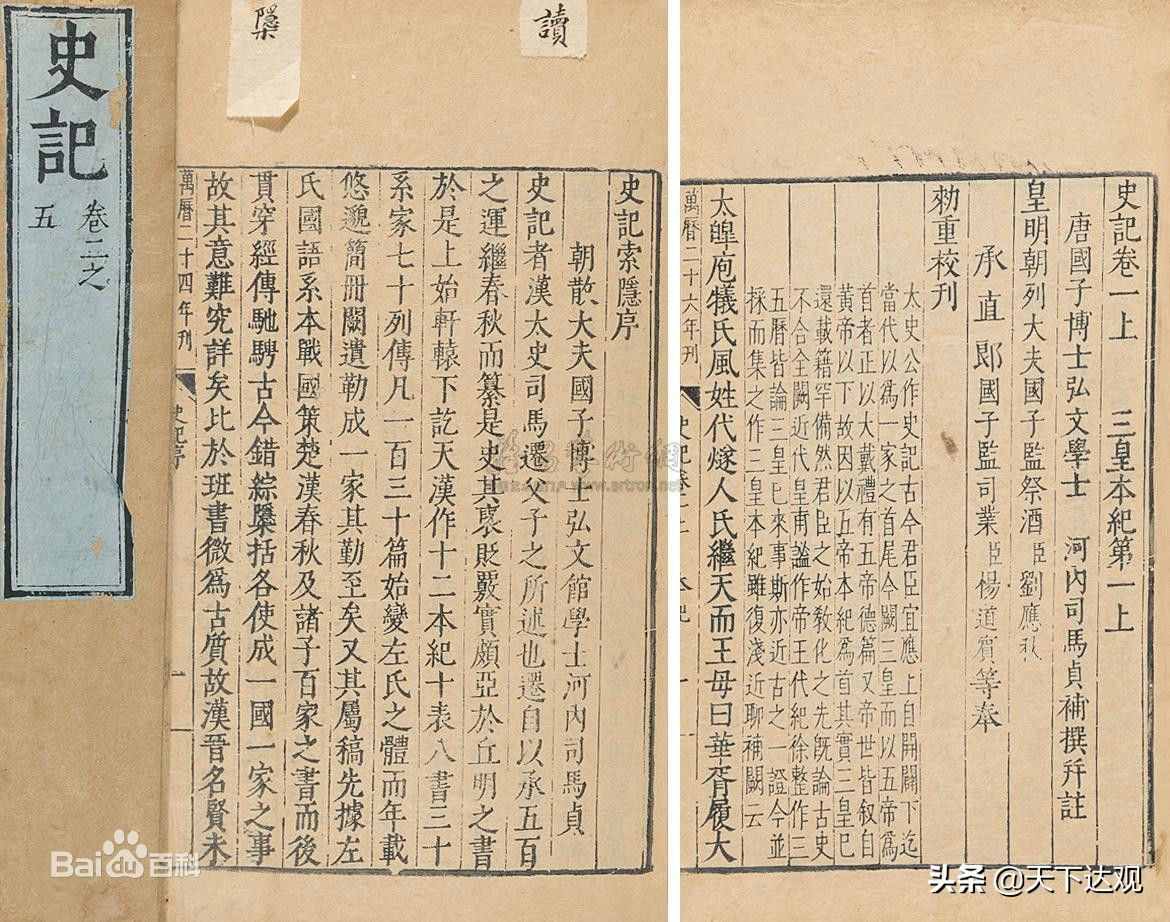 史記
卷二之
五
檃
讀
史記索隱序
朝散大夫國子博士弘文館學士河內司馬貞
史記者漢太史司馬遷父子之所述也遷自以承五百
之運繼春秋而纂是史其褒貶覈實頗亞於丘明之書
於是上始軒轅下訖天漢作十二本紀十表八書三十
系家七十列傳凡一百三十篇始變左氏之體而年載
悠邈簡冊闕遺勒成一家其勤至矣又其屬稿先據左
氏國語系本戰國策楚漢春秋及諸子百家之書而後
貫穿經傳馳騁古今錯綜檃括各使成一國一家之事
故其意難究詳矣比於班書微爲古質故漢晉名賢未
萬曆二十四年刊
史記序
一
史記卷一上 三皇本紀第一上
唐國子博士弘文學士 河內司馬貞補撰幷註
皇明朝列大夫國子監祭酒臣劉應秋
承直郎國子監司業臣楊道賓等奉
勑重校刊
太史公作史記古今君臣宜應上自開闢下迄
當代以爲一家之首尾今闕三皇而以五帝爲
首者正以大戴禮有五帝德篇又帝世皆叙自
黃帝以下故因以五帝本紀爲首其實三皇已
還載籍罕備然君臣之始敎化之先旣論古史
不合全闕近代皇甫謐作帝王代紀徐整作三
五曆皆論三皇已來事斯亦近古之一證今並
採而集之作三皇本紀雖復淺近聊補闕云
太皥庖犧氏風姓代燧人氏繼天而王母曰華胥履大
萬曆二十六年刊
Baidu百科
www.artron.net
头条 @天下达观